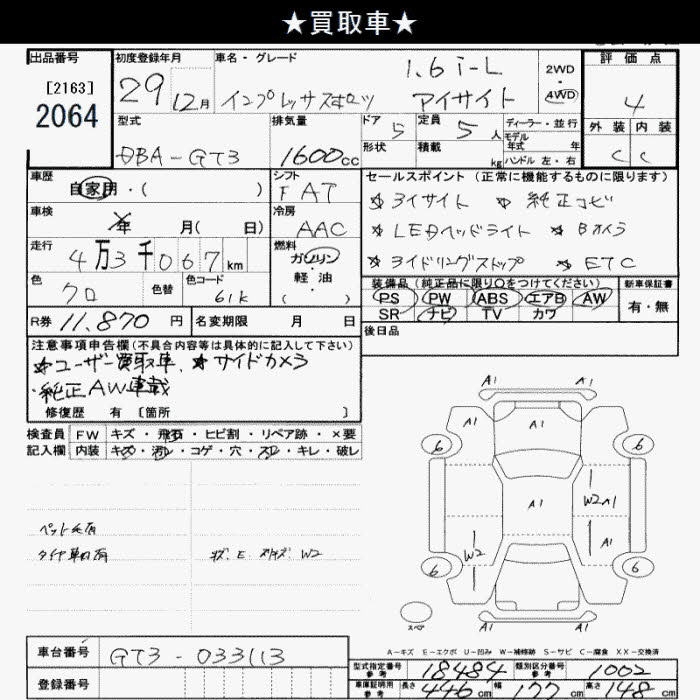 ★買取車★
出品番号
[2163]
2064
初度登録年月
29 12月
車名・グレード
インプレッサスポーツ
1.6 i-L
アイサイト
2WD
・
4WD
評価点
4
外装 内装
C C
型式
DBA-GT3
排気量
1600cc
ドア
5
定員
5人
形状
積載
kg
ディーラー・並行
モデル
年式 年
ハンドル 左・右
車歴
自家用・( )
シフト
FAT
車検
年 月( 日)
冷房
AAC
走行
4万3千067km
燃料
ガソリン
・
軽油
( )
色
クロ
色替
色コード
61K
R券 11,870円
名変期限 月 日
セールスポイント (正常に機能するものに限ります)
☆アイサイト ☆純正コビ
☆LEDヘッドライト ☆Bカメラ
☆アイドリングストップ ☆ETC
装備品 (純正品に限り○をつけてください)
PS PW ABS エアB AW
SR ナビ TV カワ
新車保証書
有・無
後日品
注意事項申告欄(不具合内容等は具体的に記入して下さい)
☆ユーザー買取車 ☆サイドカメラ
・純正AW車載
修復歴 有 〔箇所 〕
検査員
記入欄
FW キズ・飛石・ヒビ割・リペア跡・×要
内装 キズ・汚レ・コゲ・穴・スレ・キレ・破レ
ペット毛有
A1 A1
A1 A1
6 6
A1
W2 A1
W2
A1
6 6
A1
スペア
A-キズ E-エクボ U-凹み W-補修跡 S-サビ C-腐食 XX-交換済
車台番号
GT3-033113
登録番号
型式指定番号
参考
18484
類別区分番号
参考
1002
車庫証明用
参考
長さ 446cm 幅 177cm 高さ 148cm